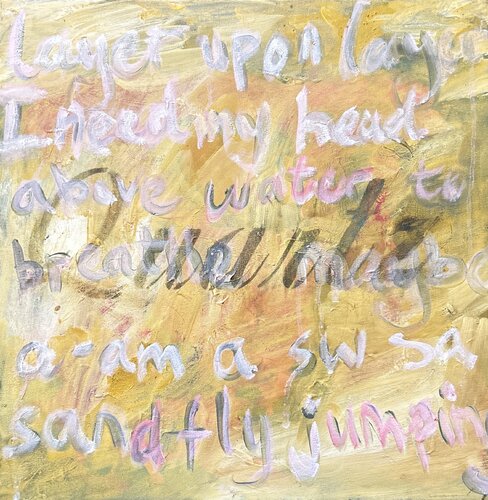 layer upon layer
I need my head
above water to
breathe maybe
a-am a sw sa
sandfly jumping